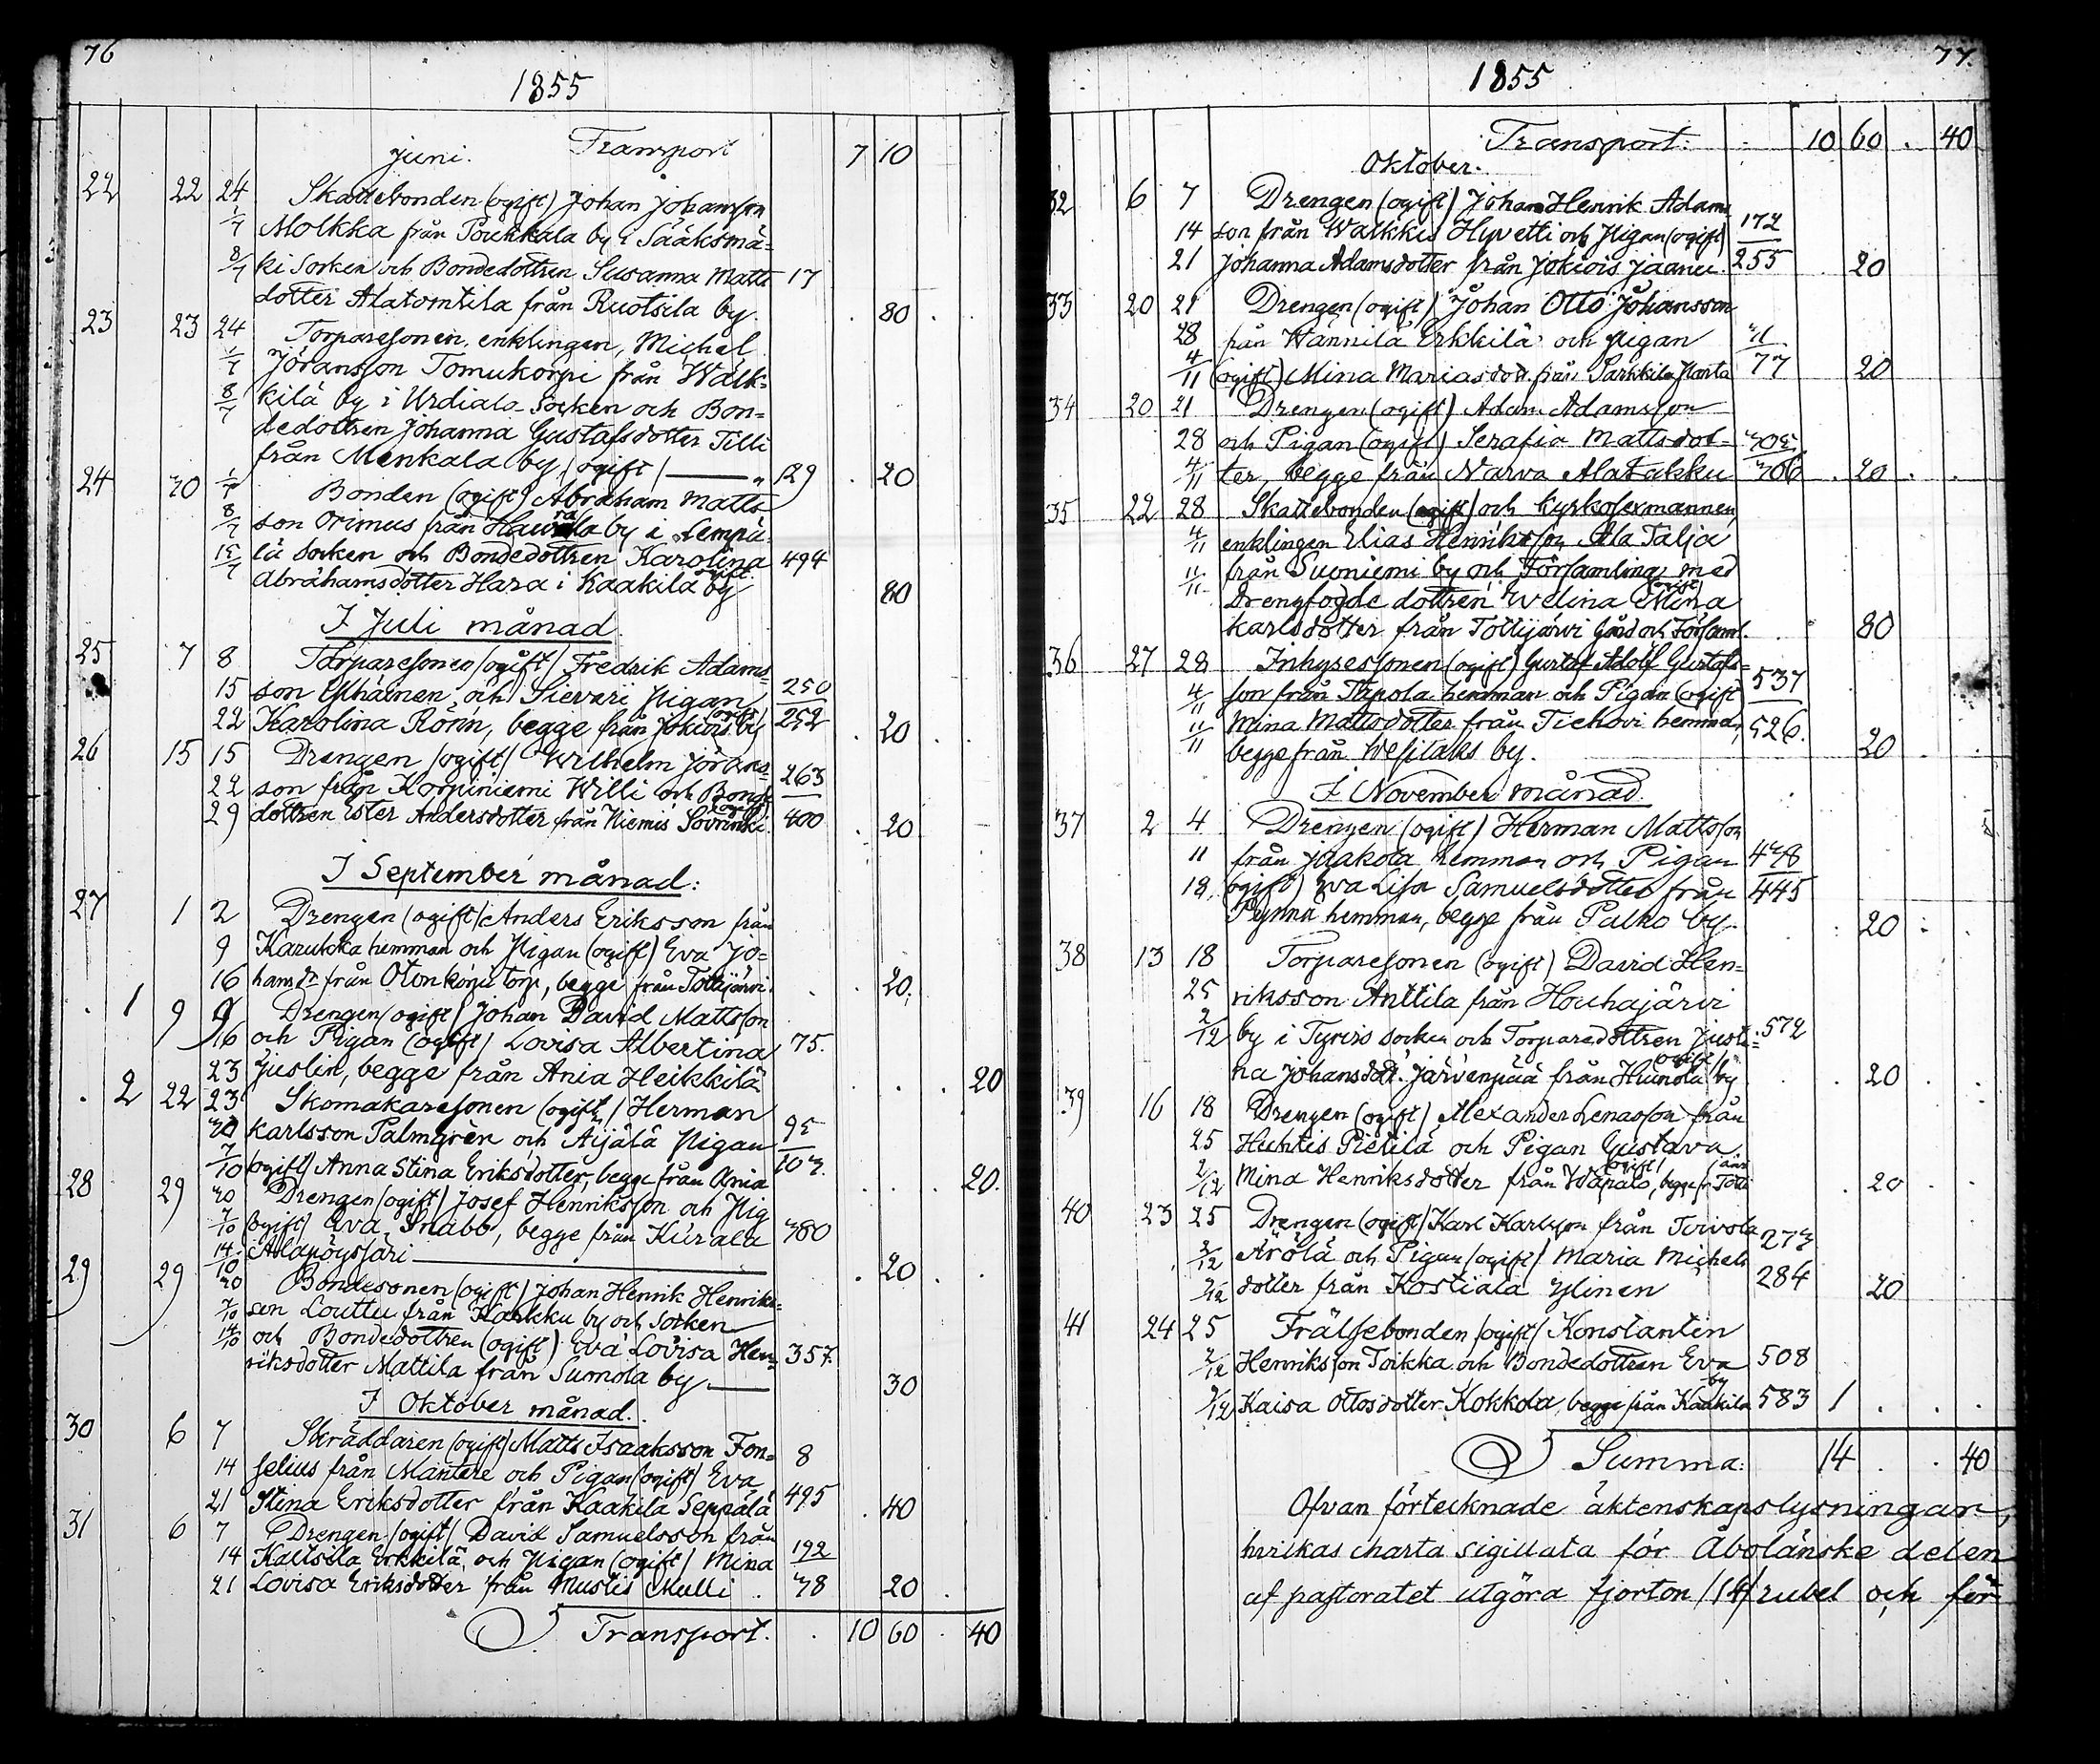 76
1855
Juni. Transport 7 10
22 22 24 Skattebonden (ogift) Johan Johansson
1/7 Molkka från Poukkala by i Sääksmä-
8/7 ki Socken och Bondedottren Susanna Matts 17
dotter Alatomtila från Ruotsila by. 80
23 23 24 Torparesonen, enklingen, Michel
1/7 Jöransson Tomukorpi från Walk-
8/7 kilä by i Urdiala Socken och Bon-
dedottren Johanna Gustafsdotter Tilli
från Menkala by / ogift / 129 20
24 30 1/7 Bonden (ogift) Abraham Matts
8/7 son Orimus från by i Lempä-
15/7 lä Socken och Bondedottren Karolina 494
Abrahamsdotter Hara i Kaakila by 80
I Juli månad.
25 7 8 Torparesonen /ogift/ Fredrik Adams-
15 son och Sievari Pigan 250
22 Karolina Rönn, begge från Jokiois by (ogift) 252 20
26 15 15 Drengen /ogift/ Wilhelm Jörans-
22 son från Korpiniemi Willi och Bonde 263
29 dottren Ester Andersdotter från Niemis (ogift) 400 20
I September månad:
27 1 2 Drengen (ogift) Anders Eriksson från
9 Karukka hemman och Pigan (ogift) Eva Jo-
16 hansdr från Otonkorpi torp, begge från Tottijärvi. 20.
1 9 9 Drengen (ogift) Johan David Mattsson
16 och Pigan (ogift) Lovisa Albertina 75.
23 Juslin, begge från Ania Heikkilä 20
2 22 23 Skomakaresonen (ogift) Herman
30 Karlsson Palmgren och Äijälä Pigan 95
7/10 (ogift) Anna Stina Eriksdotter, begge från Ania 103. 20.
28 29 30 Drengen (ogift) Josef Henriksson och Pig
7/10 (ogift) Eva Snabb, begge från Kurala 380
14/10 Alapöyssäri 20
29 29 30 Bondesonen (ogift) Johan Henrik Henriks-
7/10 son Louttu från Karkku by och Socken
14/10 och Bondedottren (ogift) Eva Lovisa Hen- 357.
riksdotter Mattila från Sumola by 30
I Oktober månad.
30 6 7 Skräddaren (ogift) Matts Isaaksson Fon- 8
14 selius från Mantere och Pigan (ogift) Eva
21 Stina Eriksdotter från Kaakila Seppälä 495 40
31 6 7 Drengen /ogift/ David Samuelsson från
14 Kaltsila Erkkilä och Pigan (ogift) Mina 192
21 Lovisa Eriksdotter från Mustis Mulli 38 20
Transport. 10 60 40
77
1855
Transport: 10 60 40
Oktober.
32 6 7 Drengen (ogift) Johan Henrik Adams
14 son från Walkkis Hyvetti och Pigan (ogift) 172
21 Johanna Adamsdotter från Jokiois Jaanu. 255 20
33 20 21 Drengen (ogift) Johan Otto Johansson
28 från Hännilä Erkkilä och Pigan 11
4/11 (ogift) Mina Mariasdotr. från Sarkkila 77 20
34 20 21 Drengen (ogift) Adam Adamsson
28 och Pigan (ogift) Serafia Mattsdot- 305
4/11 ter, begge från Narva Alatakku 306 20
35 22 28 Skattebonden (ogift) och Kyrkosexmannen,
4/11 enklingen Elias Henriksson Ala Talja
11/11 från Suoniemi by och Församling med
Drengfogde dottren Evelina Mina (ogift)
Karlsdotter från Tottijärvi Gård och Församl. 80
36 27 28 Inhysessonen (ogift) Gustaf Adolf Gustafs-
4/11 son från Tapola hemman och Pigan (ogift) 537
11/11 Mina Mattsdotter från Tiehovi hemman, 526.
begge från Wesilaks by. 20
I November månad.
37 2 4 Drengen (ogift) Herman Mattsson
11 från Jaakola hemman och Pigan 448
18 (ogift) Eva Lisa Samuelsdotter från 445
Pynnä hemman, begge från Palko by. 20
38 13 18 Torparesonen (ogift) David Hen-
25 riksson Anttila från Houhajärvi
2/12 by i Tyrvis Socken och Torparedottren Justi- 572
na Johansdotr. Järvenpää från Hunola by (ogift) 20
39 16 18 Drengen (ogift) Alexander Lenasson från
25 Huhtis Pietilä och Pigan Gustava
2/12 Mina Henriksdotter från Wapalo, (ogift) begge fr. Totti järvi 20
40 23 25 Drengen (ogift) Karl Karlsson från Toivola
2/12 Ärölä och Pigan (ogift) Maria Michels 273
9/12 dotter från Kostiala Ylinen 284 20
41 24 25 Frälsebonden /ogift/ Konstantin
2/12 Henriksson Toikka och Bondedottren Eva 508
9/12 Kaisa Ottosdotter Kokkola, begge från Kaakila by 583 1
Summa: 14 40
Ofvan förtecknade äktenskapslysningar,
hvilkas charta sigillata för Åbolänske delen
af pastoratet utgöra fjorton /14/ rubel och för